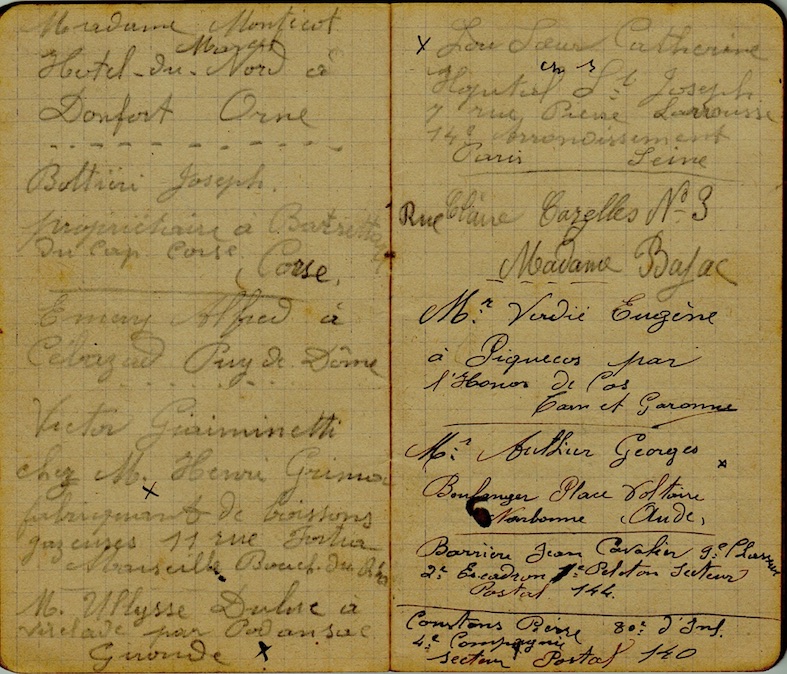 Madame Monticot
Hotel-du-Nord à
Donfort Orne
Bottieri Joseph.
propriétaire à
Du Cap Corse
Corse.
Emery Alfred à
Cébazad Puy de Dôme
Victor Giaiminetti
chez M. Henri
x
fabriquant de boissons
gazeuses 11 rue
Marseille Bouch. du
M. Ullysse à
par Podansac
Gironde x
x Sœur Catherine
Hôpital St Joseph
7 rue Pierre Larrousse
14e Arrondissement
Paris Seine
Rue Claire Cazelles No 3
Madame Bajac
Mr Verdié Eugène
à Piquecos par
l'Honor de Cos
Tarn et Garonne
Mr Authier Georges
x
Boulanger Place Voltaire
Narbonne (Aude)
Barrière Jean Cavalier 9e
2e Escadron 1e Peloton Secteur
Postal 144.
Constans Pierre 80e d'Inf.
4e Compagnie
Secteur Postal 140